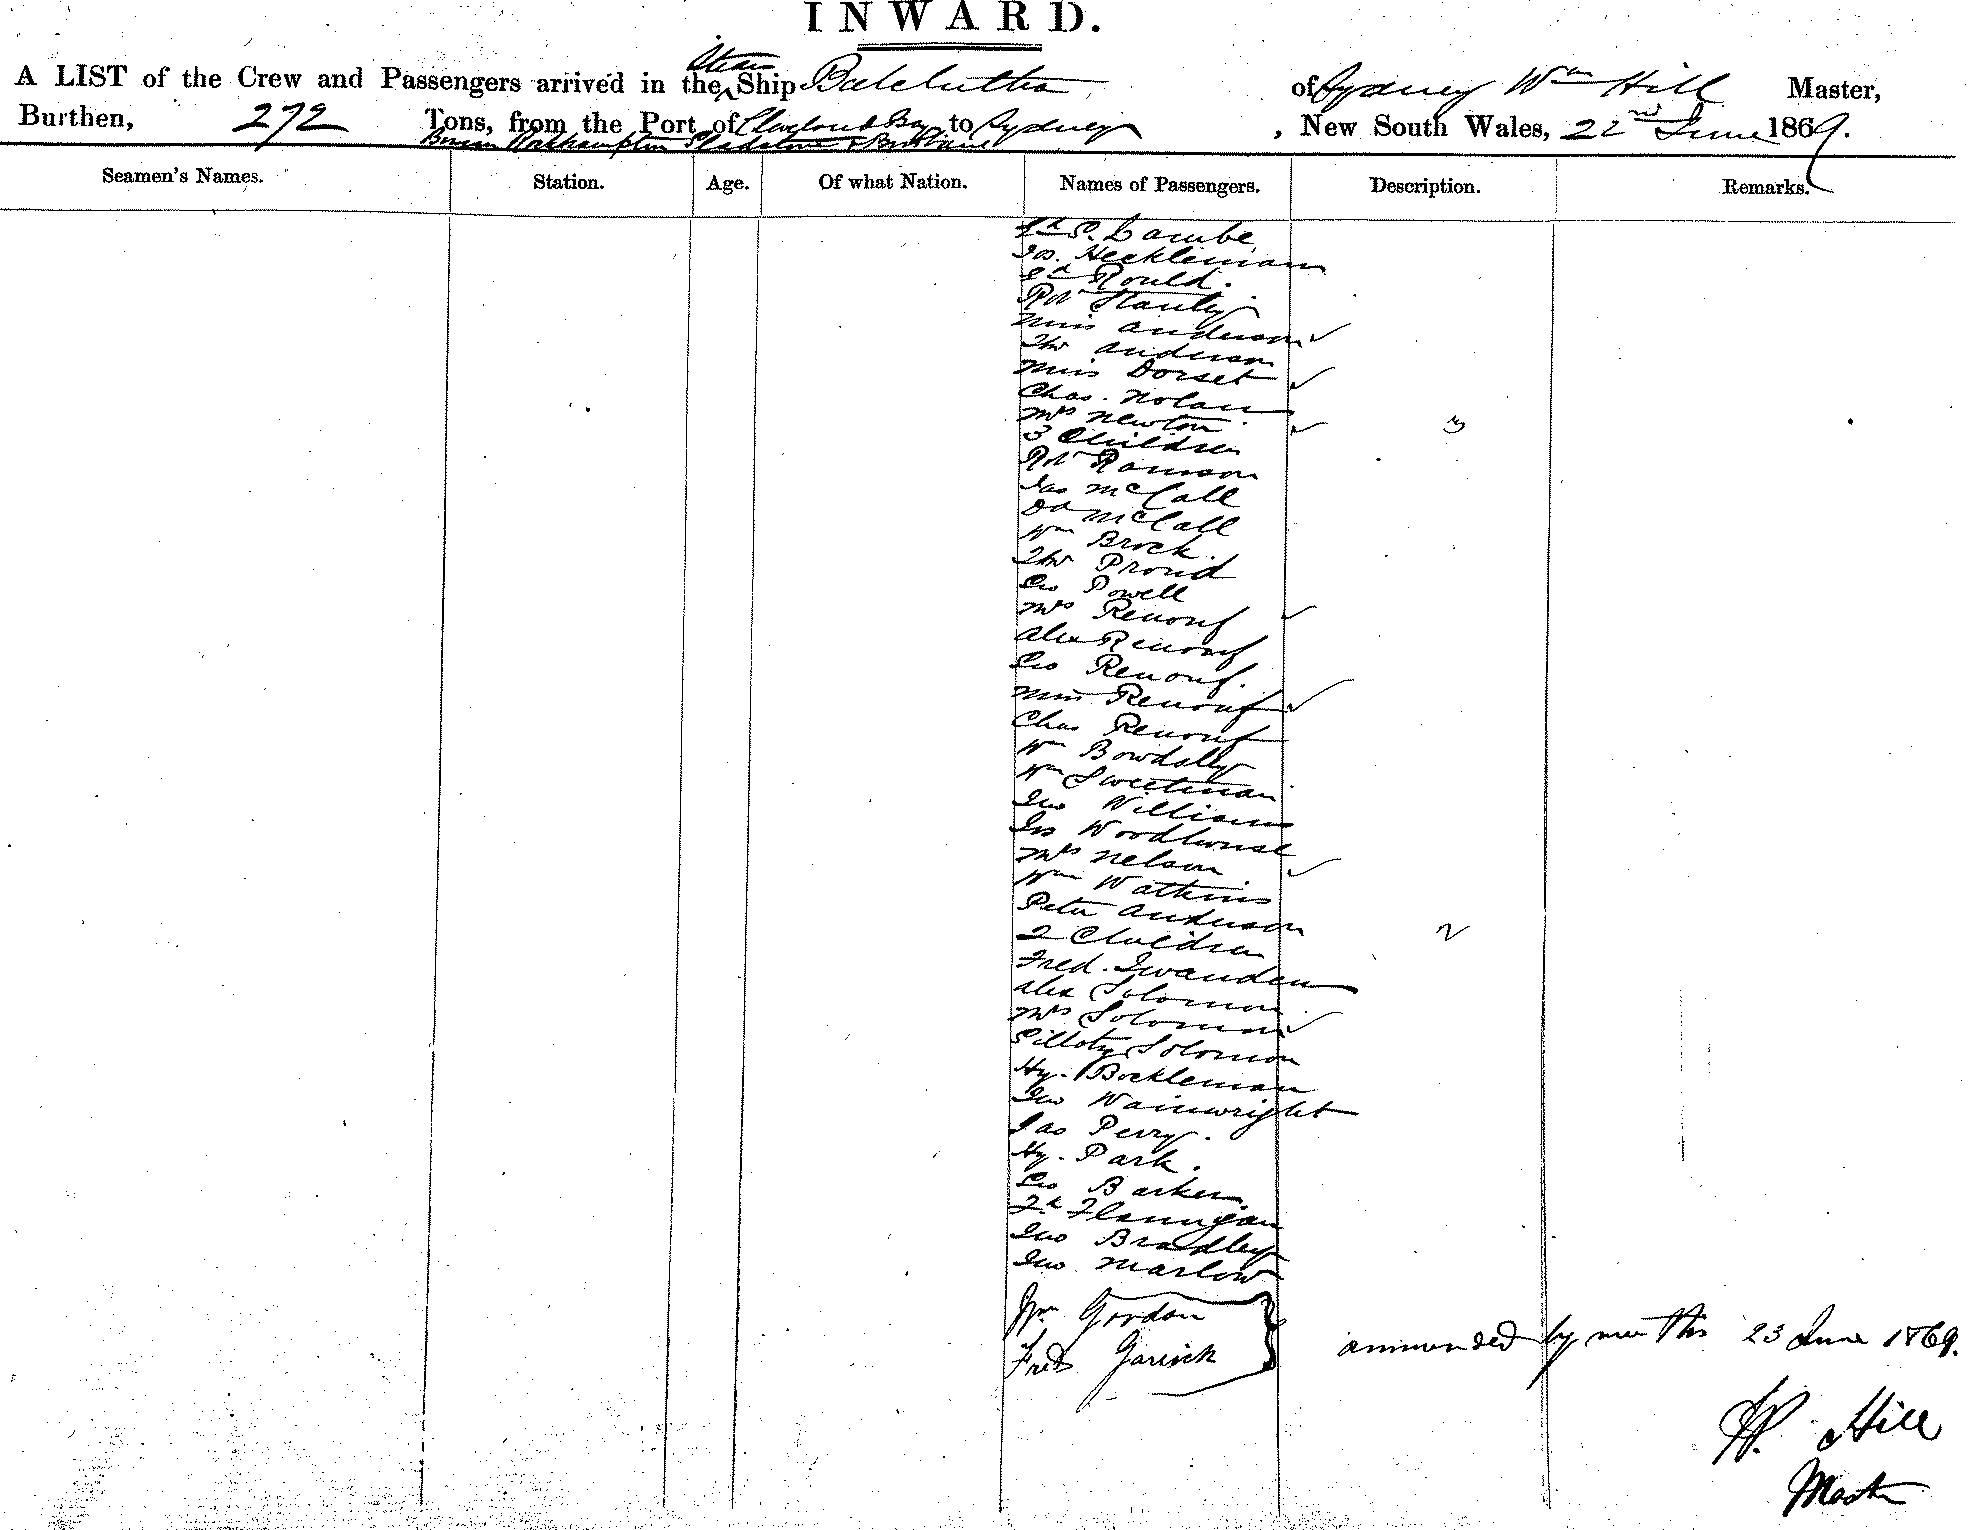 INWARD.
Steam
A LIST of the Crew and Passengers arrived in the Ship Balclutha of Sydney Wm Hill Master,
Burthen, 272 Tons, from the Port of Cleveland Bay to Sydney, New South Wales, 22nd June 1869.
Bowen Rockhampton Gladstone & Brisbane
Seamen's Names. Station. Age. Of what Nation. Names of Passengers. Description. Remarks.
Lambe
Jos. Heckleman
Ed Rould.
Robt Stanley
Miss Anderson
Thos Anderson
Miss Dorset
Chas. Nolan
Mrs Newton
3 Children 3
Robt Ramson
Jas McCall
Dd McCall
Wm Brock.
Thos Proud
Geo Powell
Mrs Renouf
Alex Renouf
Geo Renouf.
Miss Renouf
Chas Renouf
Wm Bowdsley
Wm Sweetman
Jno Williams
Jos Woodhouse
Mrs Nelson
Wm Watkins
Peter Anderson
2 Children 2
Fred.
Alex Solomon
Mrs Solomon
Solomon
Hy. Bockleman
Jno Wainwright
Jas Perry.
Hy. Park.
Geo Barker
Fk Flannigan
Jno Bradley
Jno Marlow
Wm Gordon
Fred Garrick
ammended by me this 23 June 1869.
W. Hill
Master